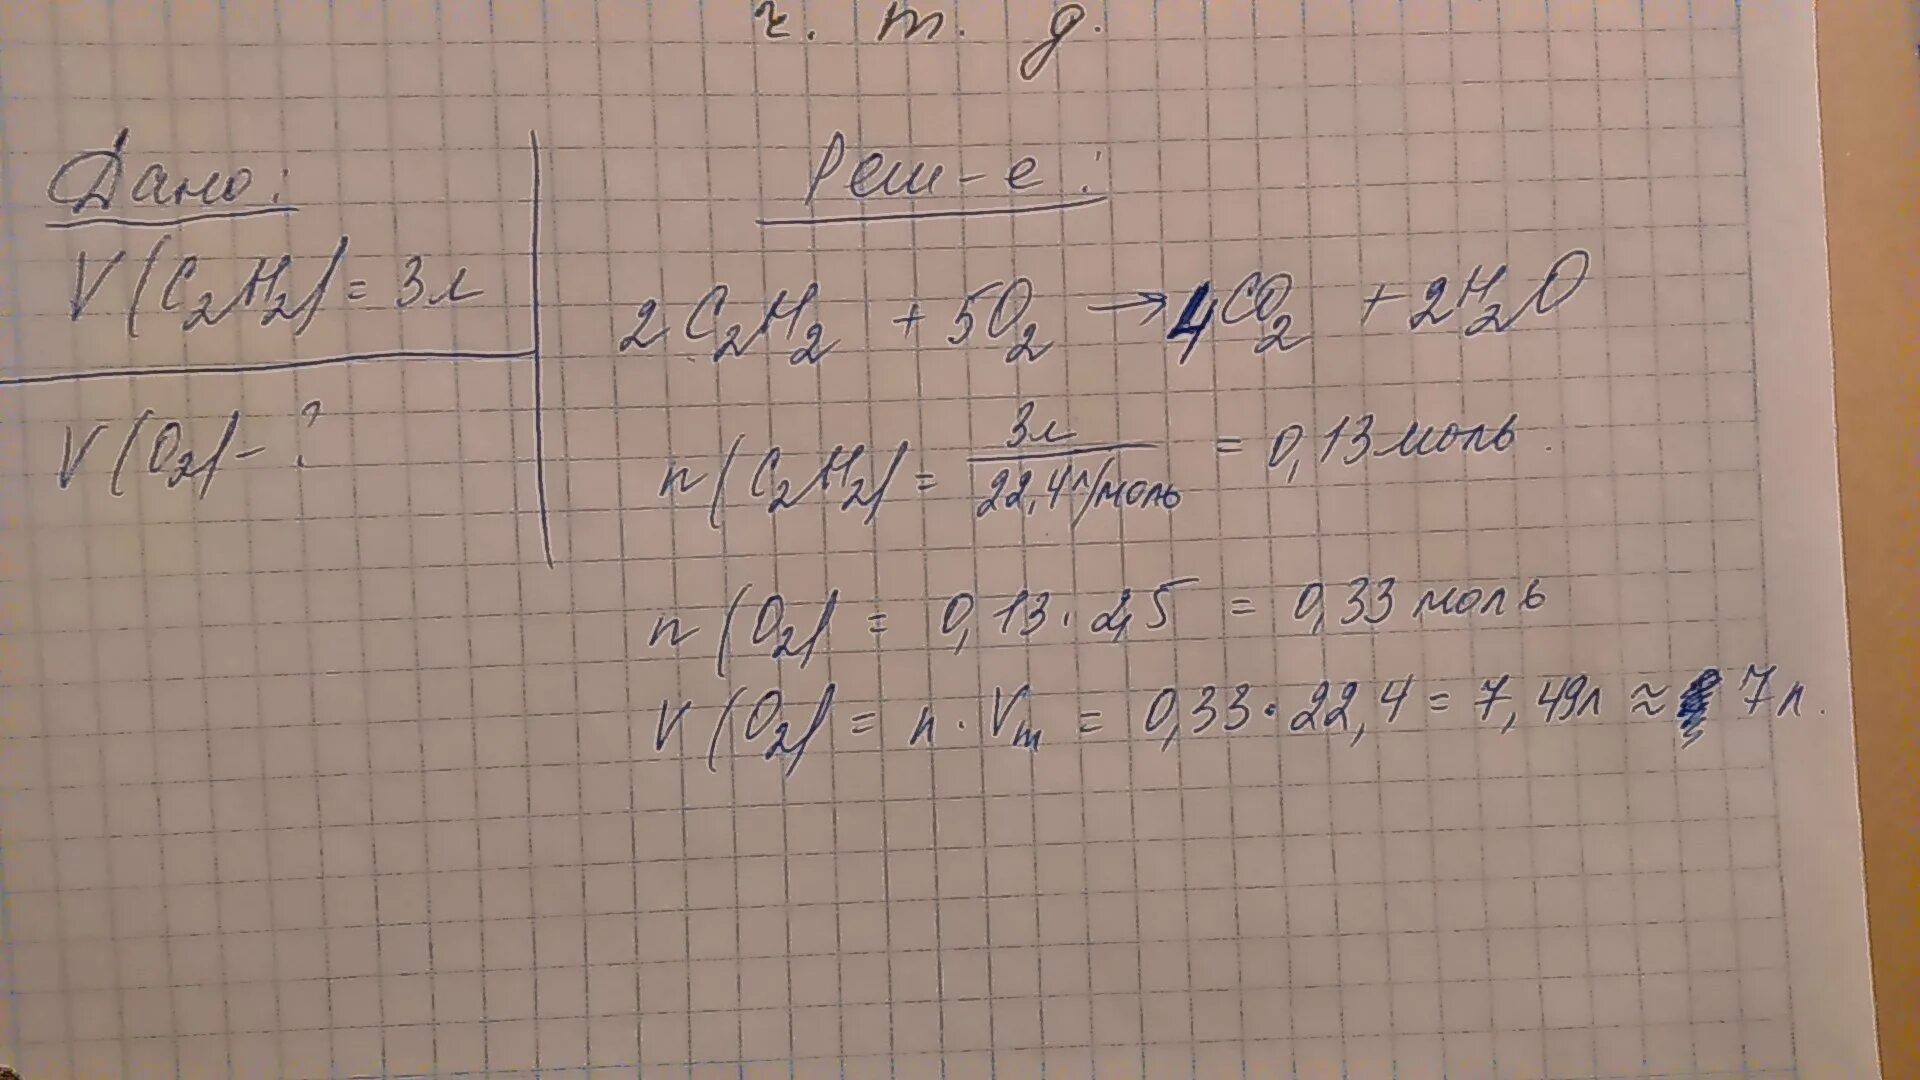 ч. т. д.
Дано:
V(C₂H₂) = 3л
V(O₂) - ?
Реш-е:
2C₂H₂ + 5O₂ → 4CO₂ + 2H₂O
n(C₂H₂) = 3л / 22,4л/моль = 0,13 моль.
n(O₂) = 0,13 · 2,5 = 0,33 моль
V(O₂) = n · Vm = 0,33 · 22,4 = 7,49л ≈ 7л.